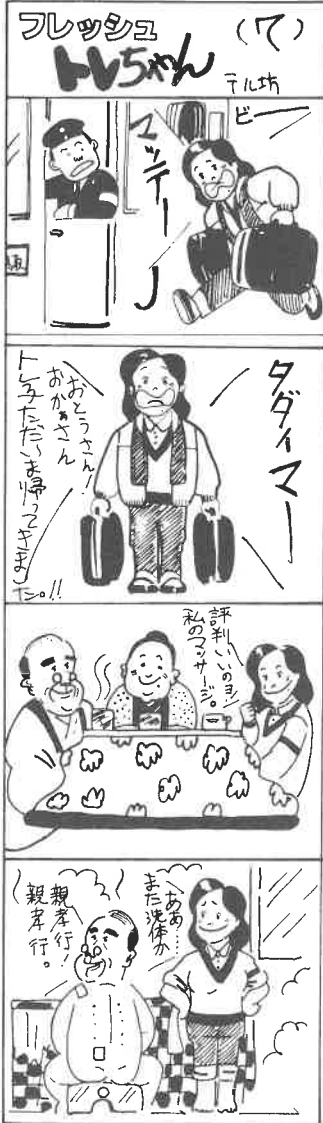 フレッシュ
トレちゃん
(7)
テル坊
ビー
マッテー
タダイマー
おとうさん!
おかあさん
トレ子ただいま帰ってきました。!!
評判いいのョ!
私のマッサージ。
ああ…
また洗体か
親孝行!
親孝行。